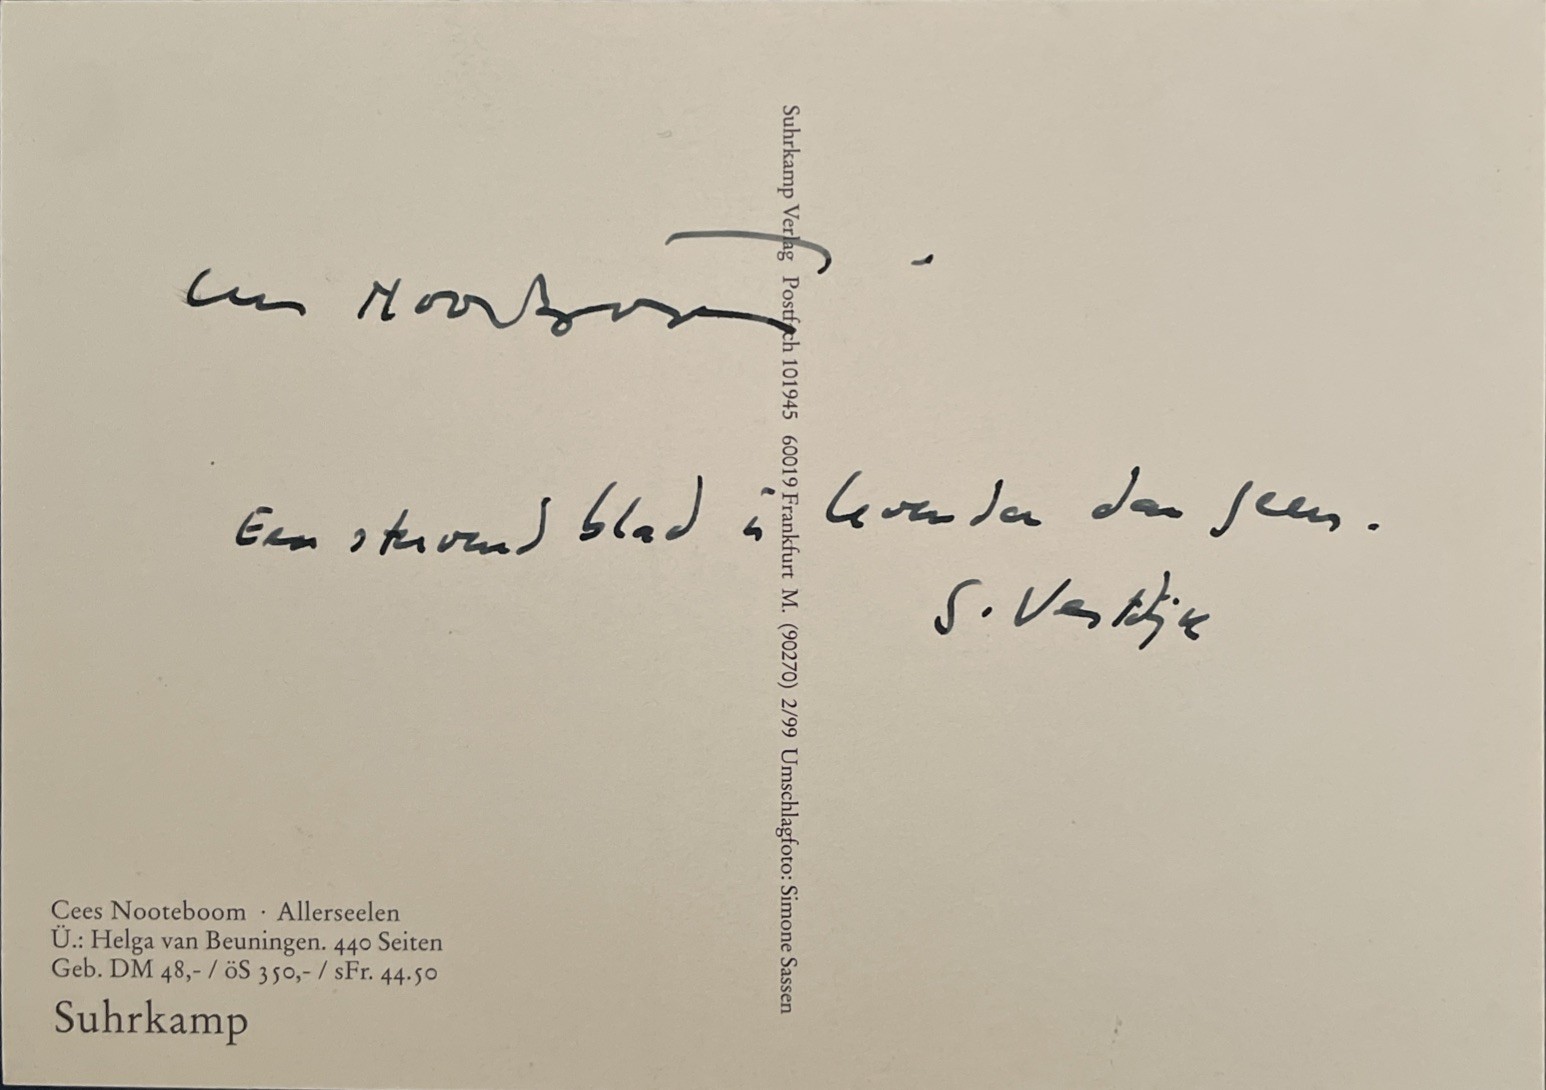 Cees Nooteboom
Een stervend blad is levender dan geen.
S. Vestdijk
Suhrkamp Verlag Postfach 101945 60019 Frankfurt M. (90270) 2/99 Umschlagfoto: Simone Sassen
Cees Nooteboom · Allerseelen
Ü.: Helga van Beuningen. 440 Seiten
Geb. DM 48,- / öS 350,- / sFr. 44.50
Suhrkamp